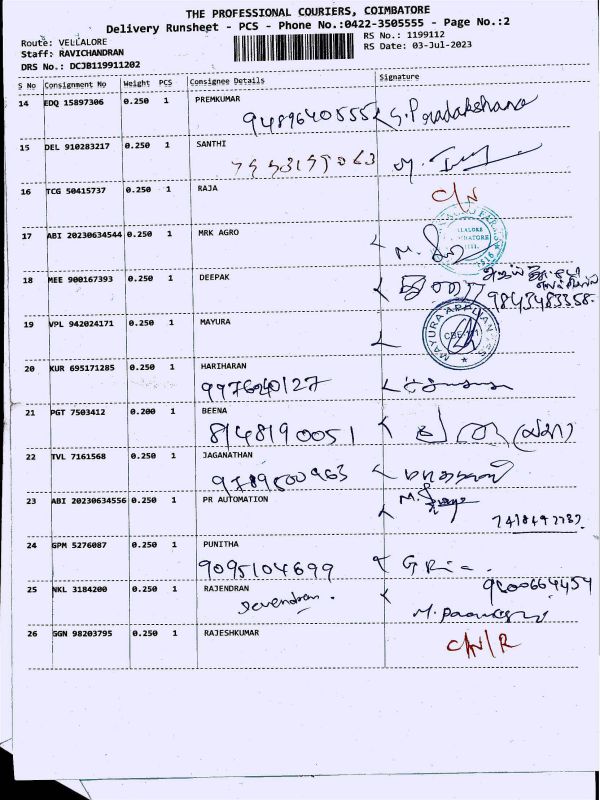 THE PROFESSIONAL COURIERS, COIMBATORE
Delivery Runsheet - PCS - Phone No.:0422-3505555 - Page No.:2
Route: VELLALORE
RS No.: 1199112
Staff: RAVICHANDRAN
RS Date: 03-Jul-2023
DRS No.: DCJB119911202
S No Consignment No Weight PCS Consignee Details Signature
14 EDQ 15897306 0.250 1 PREMKUMAR
9489640555 S. Pradakshana
15 DEL 910283217 0.250 1 SANTHI
16 TCG 50415737 0.250 1 RAJA C/N
17 ABI 20230634544 0.250 1 MRK AGRO
18 MEE 900167393 0.250 1 DEEPAK
9843483358
19 VPL 942024171 0.250 1 MAYURA
MAYURA APPLIANCES
20 KUR 695171285 0.250 1 HARIHARAN
9976240127
21 PGT 7503412 0.200 1 BEENA
8148190051
22 TVL 7161568 0.250 1 JAGANATHAN
9789500963
23 ABI 20230634556 0.250 1 PR AUTOMATION
24 GPM 5276087 0.250 1 PUNITHA
9095104699
25 NKL 3184200 0.250 1 RAJENDRAN
9600664454
Devendran.
26 GGN 98203795 0.250 1 RAJESHKUMAR C/N/R